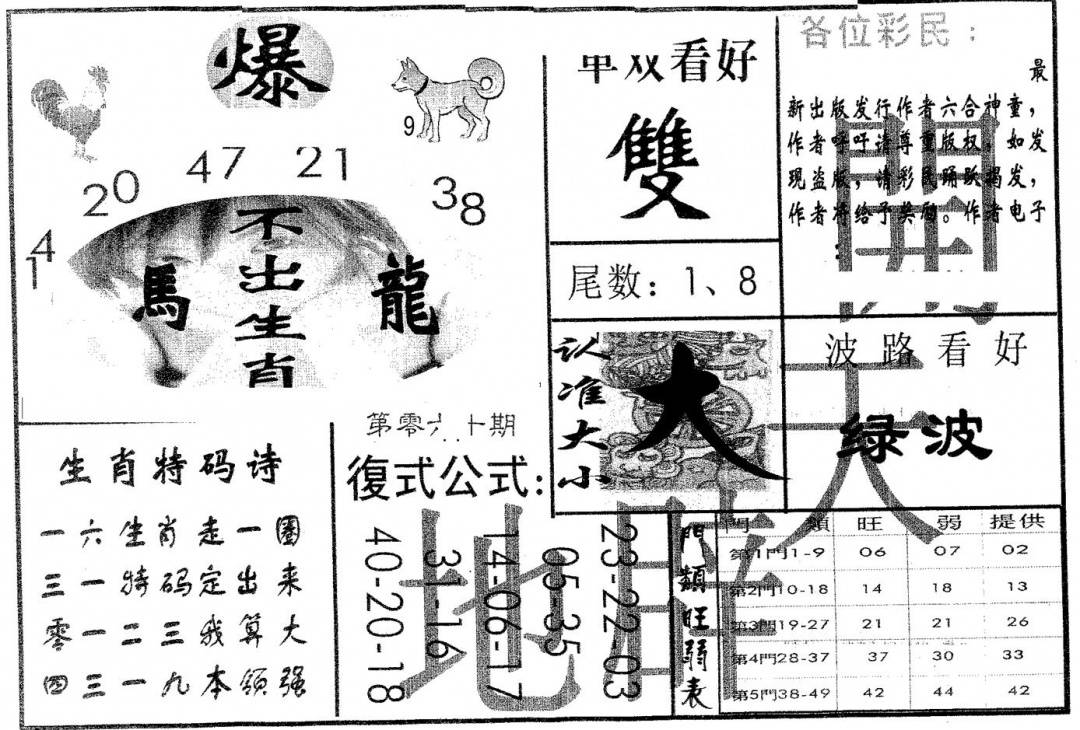 爆
9
14 20 47 21 38
不出生肖
馬
龍
单双看好
雙
尾数：1、8
认准大小
大
各位彩民：
最
新出版发行作者六合神童，
作者呼吁请尊重版权，如发
现盗版，请彩民踊跃揭发，
作者将给予奖励。作者电子
：
波路看好
绿波
開
天
地
生肖特码诗
一六生肖走一圈
三一特码定出来
零一二三我算大
四三一九本领强
第零六十期
復式公式：
40-20-18
31-16
14-06-17
05-35
23-22-03
門類旺弱表
門 類 旺 弱 提供
第1門1-9 06 07 02
第2門10-18 14 18 13
第3門19-27 21 21 26
第4門28-37 37 30 33
第5門38-49 42 44 42